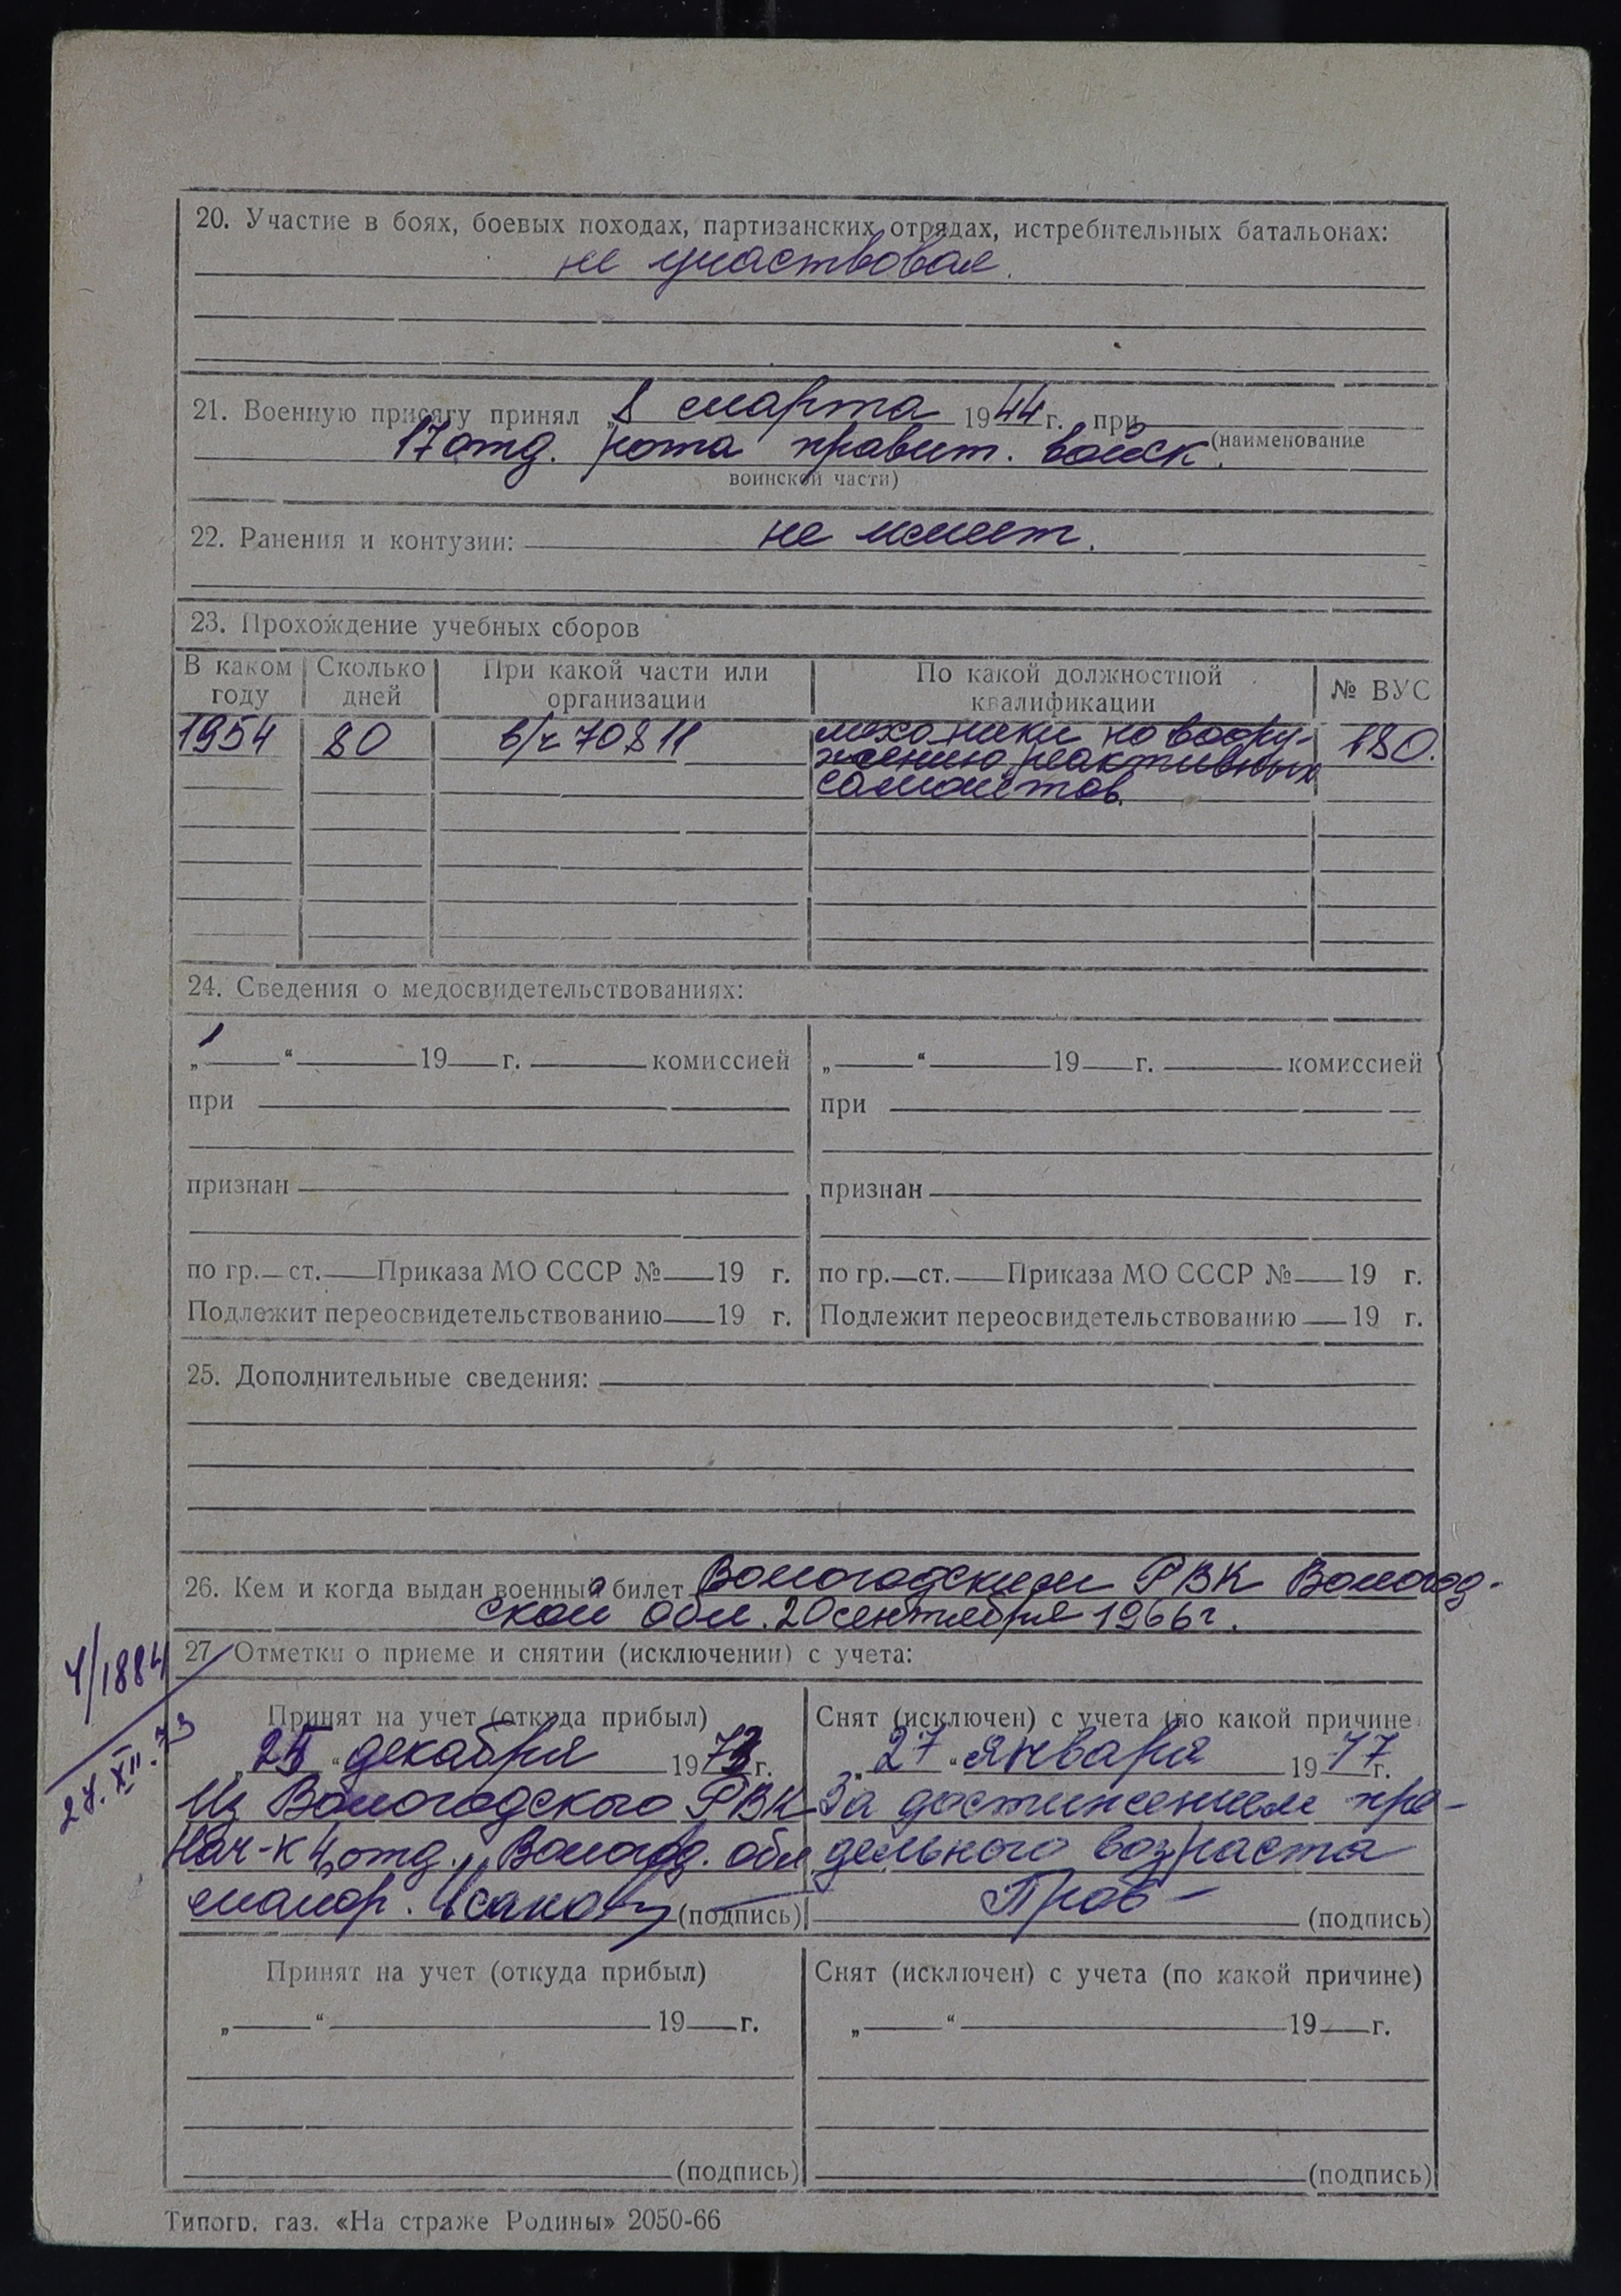 20. Участие в боях, боевых походах, партизанских отрядах, истребительных батальонах:
не участвовал.
21. Военную присягу принял „8 марта 1944 г. при
17 отд. рота правит. войск. (наименование
воинской части)
22. Ранения и контузии: не имеет.
23. Прохождение учебных сборов
В каком году Сколько дней При какой части или организации По какой должностной квалификации № ВУС
1954 80 в/ч 70811 механики по воору-
жению реактивных 180.
самолётов.
24. Сведения о медосвидетельствованиях:
„ “ 19 г. комиссией „ “ 19 г. комиссией
при при
признан признан
по гр. ст. Приказа МО СССР № 19 г. по гр. ст. Приказа МО СССР № 19 г.
Подлежит переосвидетельствованию 19 г. Подлежит переосвидетельствованию 19 г.
25. Дополнительные сведения:
26. Кем и когда выдан военный билет Вологодским РВК Вологод-
ской обл. 20 сентября 1966 г.
27. Отметки о приеме и снятии (исключении) с учета:
4/1884
28.XII.73
Принят на учет (откуда прибыл)
„25“ декабря 1973 г.
Из Вологодского РВК
Нач-к 4 отд. Вологод. обл.
майор. Исаков (подпись)
Снят (исключен) с учета (по какой причине
„27“ января 1977 г.
За достижением пре-
дельного возраста
(подпись)
Принят на учет (откуда прибыл) Снят (исключен) с учета (по какой причине)
„ “ 19 г. „ “ 19 г.
(подпись) (подпись)
Типогр. газ. «На страже Родины» 2050-66